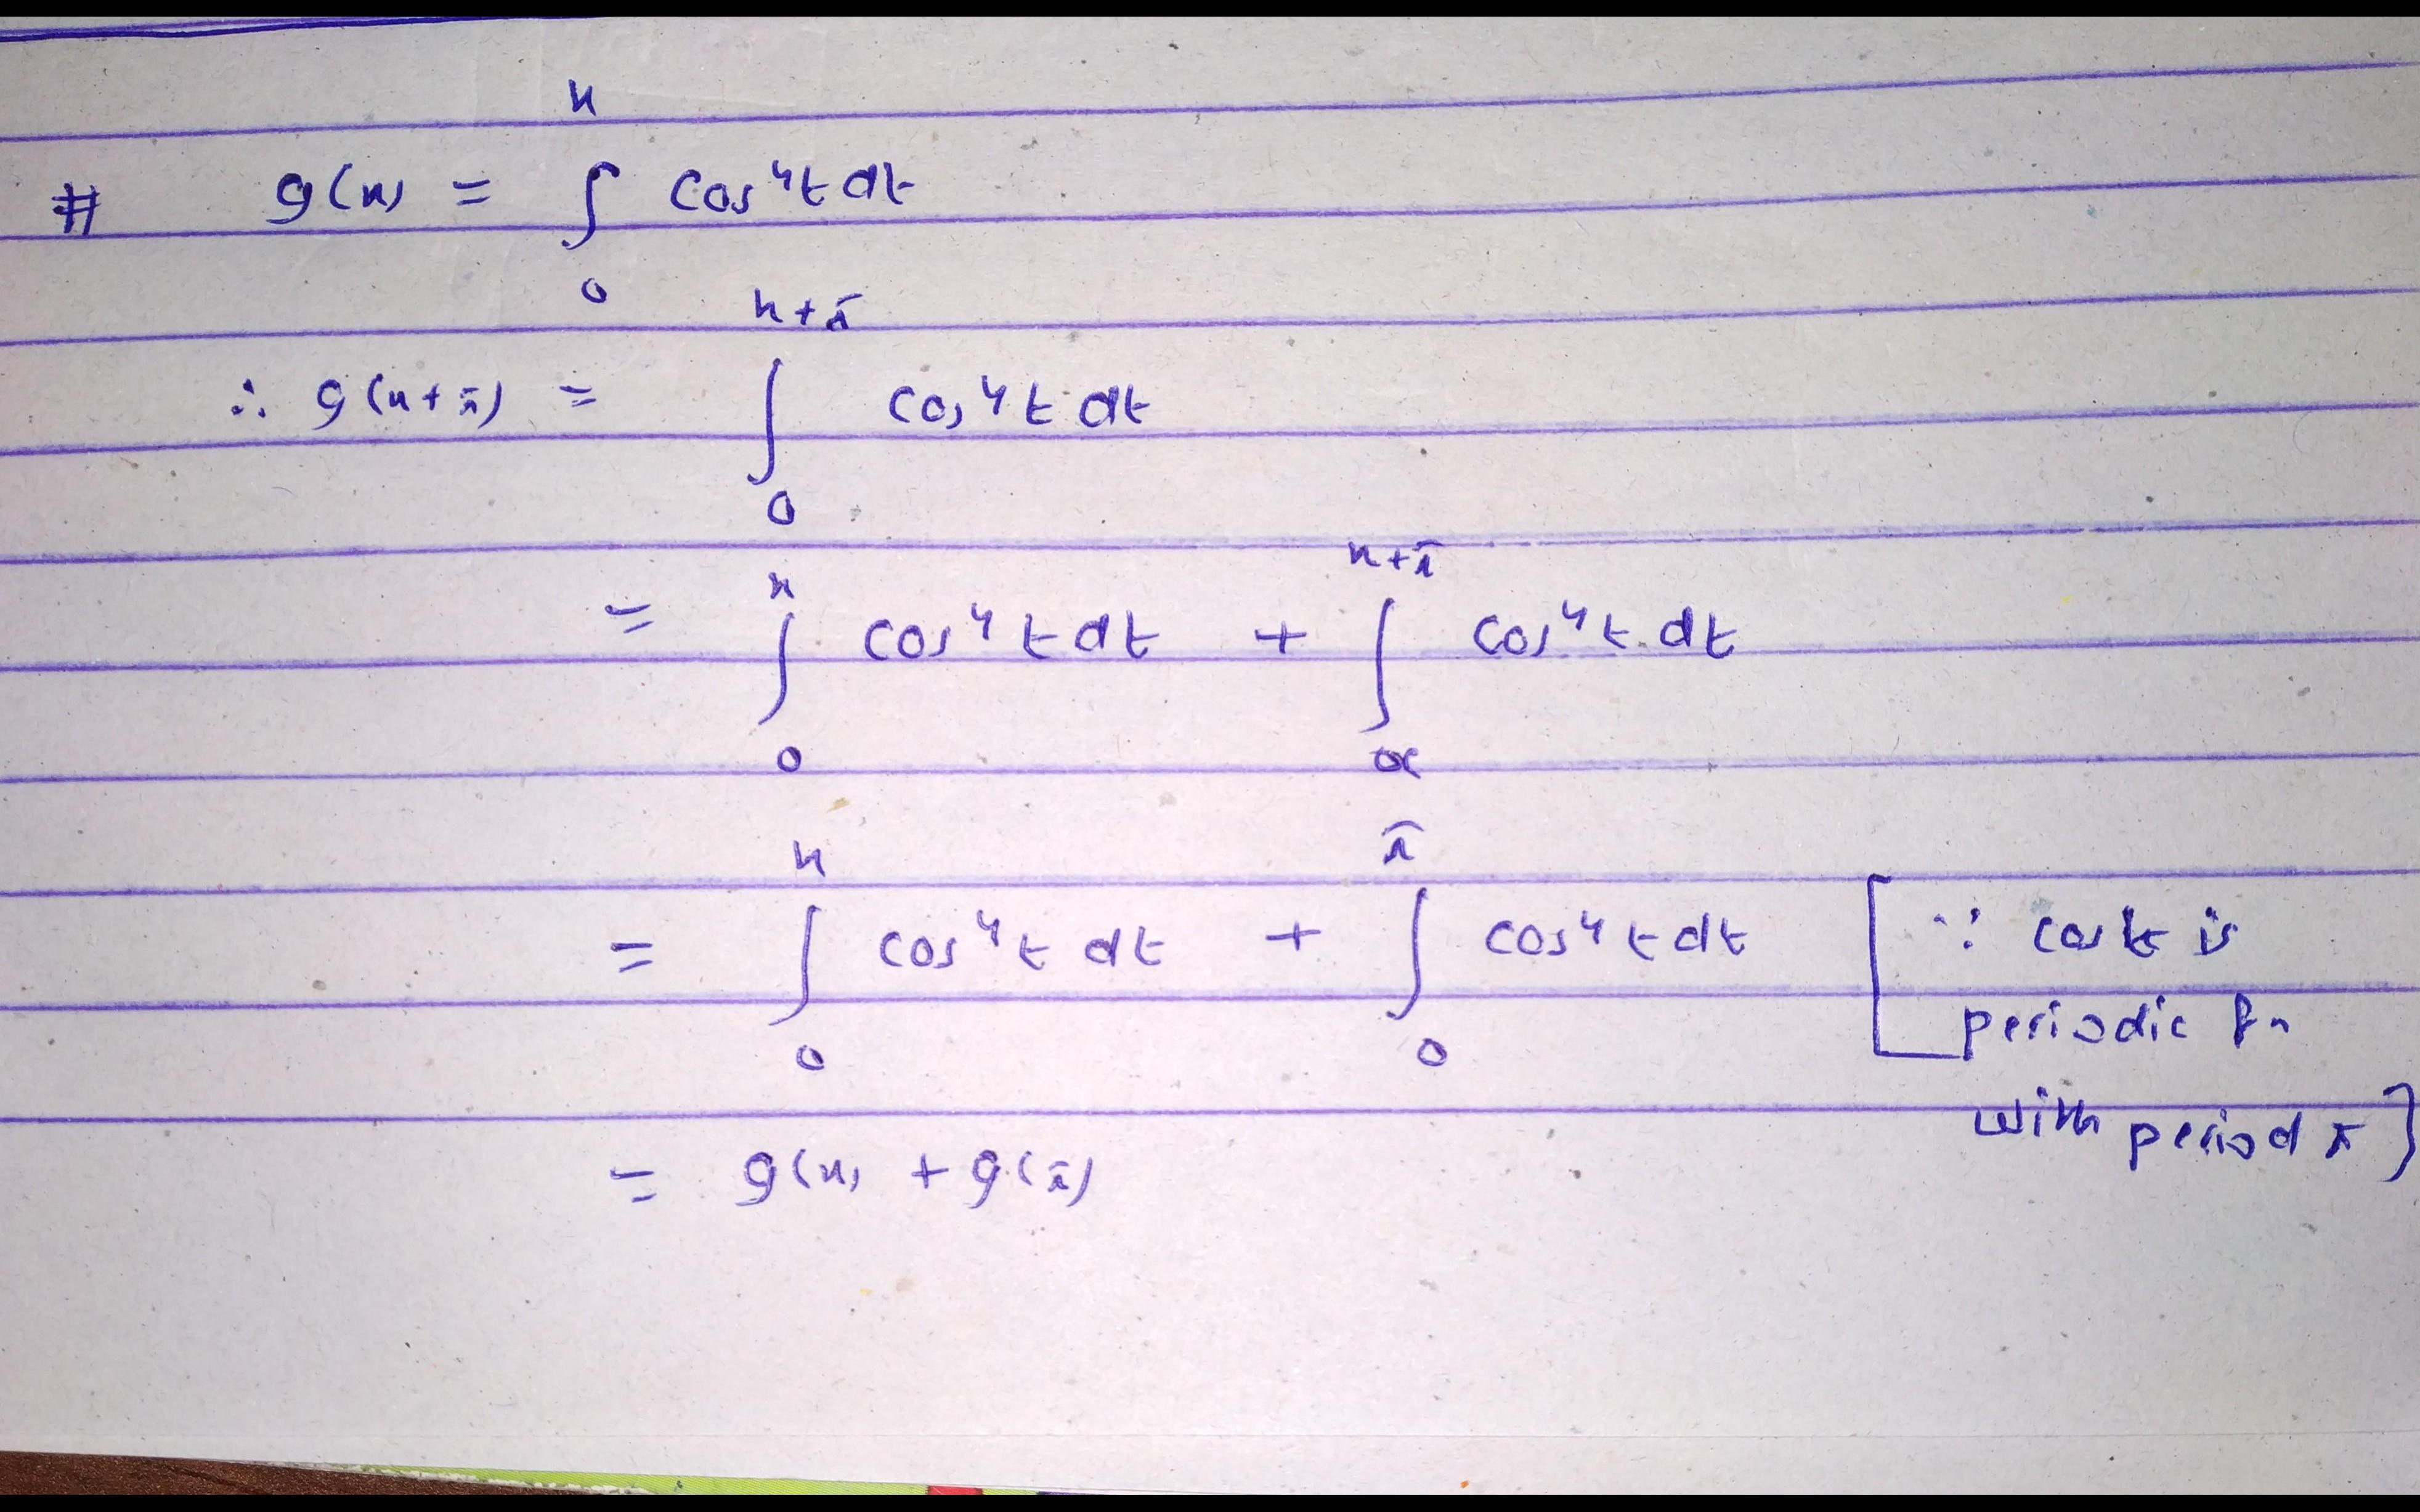 # g(x) = ∫₀ˣ cos⁴t dt
∴ g(x+π) = ∫₀ˣ⁺π cos⁴t dt
= ∫₀ˣ cos⁴t dt + ∫ₓˣ⁺π cos⁴t dt
= ∫₀ˣ cos⁴t dt + ∫₀π cos⁴t dt [∵ is
periodic fn
with period π]
= g(x) + g(π)